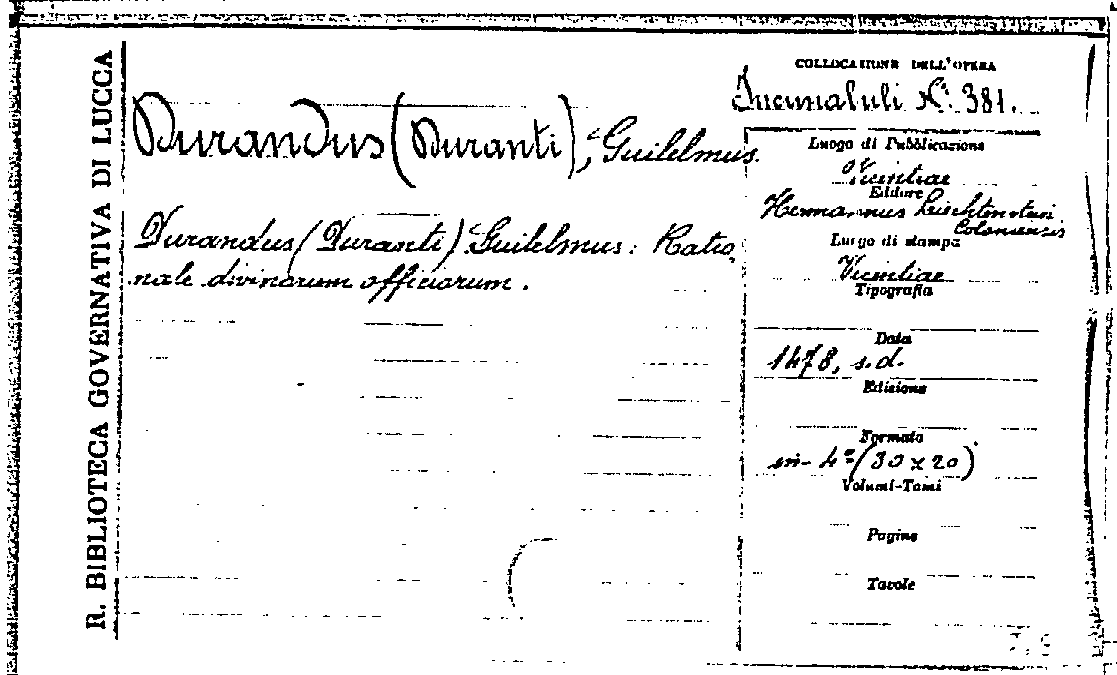 R. BIBLIOTECA GOVERNATIVA DI LUCCA
Durandus (Duranti), Guilelmus.
Durandus (Duranti) Guilelmus: Ratio,
nale divinorum officiorum.
COLLOCAZIONE DELL'OPERA
Incunabuli N.° 381.
Luogo di Pubblicazione
Vicintiae
Editore
Hermannus Liechtenstein
Coloniensis
Luogo di stampa
Vicintiae
Tipografia
Data
1478, s.d.
Edizione
Formato
in-4° (30 x 20)
Volumi-Tomi
Pagine
Tavole